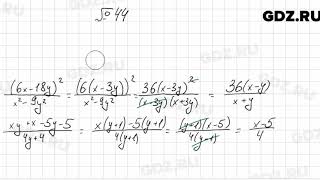 GDZ.RU
№ 44
(6x-18y)²/(x²-9y²) = (6(x-3y))²/(x²-9y²) = 36(x-3y)²/((x-3y)(x+3y)) = 36(x-3y)/(x+y)
(xy+x-5y-5)/(4y+4) = (x(y+1)-5(y+1))/(4(y+1)) = ((y+1)(x-5))/(4(y+1)) = (x-5)/4
GDZ.RU